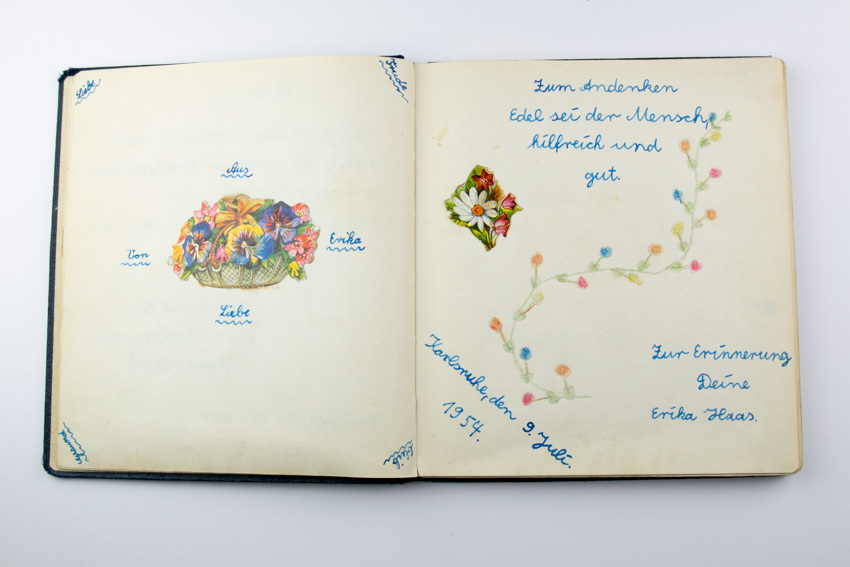 Liebe
Trude
Aus
Von
Erika
Liebe
bleib
gesund
Zum Andenken
Edel sei der Mensch,
hilfreich und
gut.
Karlsruhe, den 9. Juli.
1954.
Zur Erinnerung
Deine
Erika Haas.